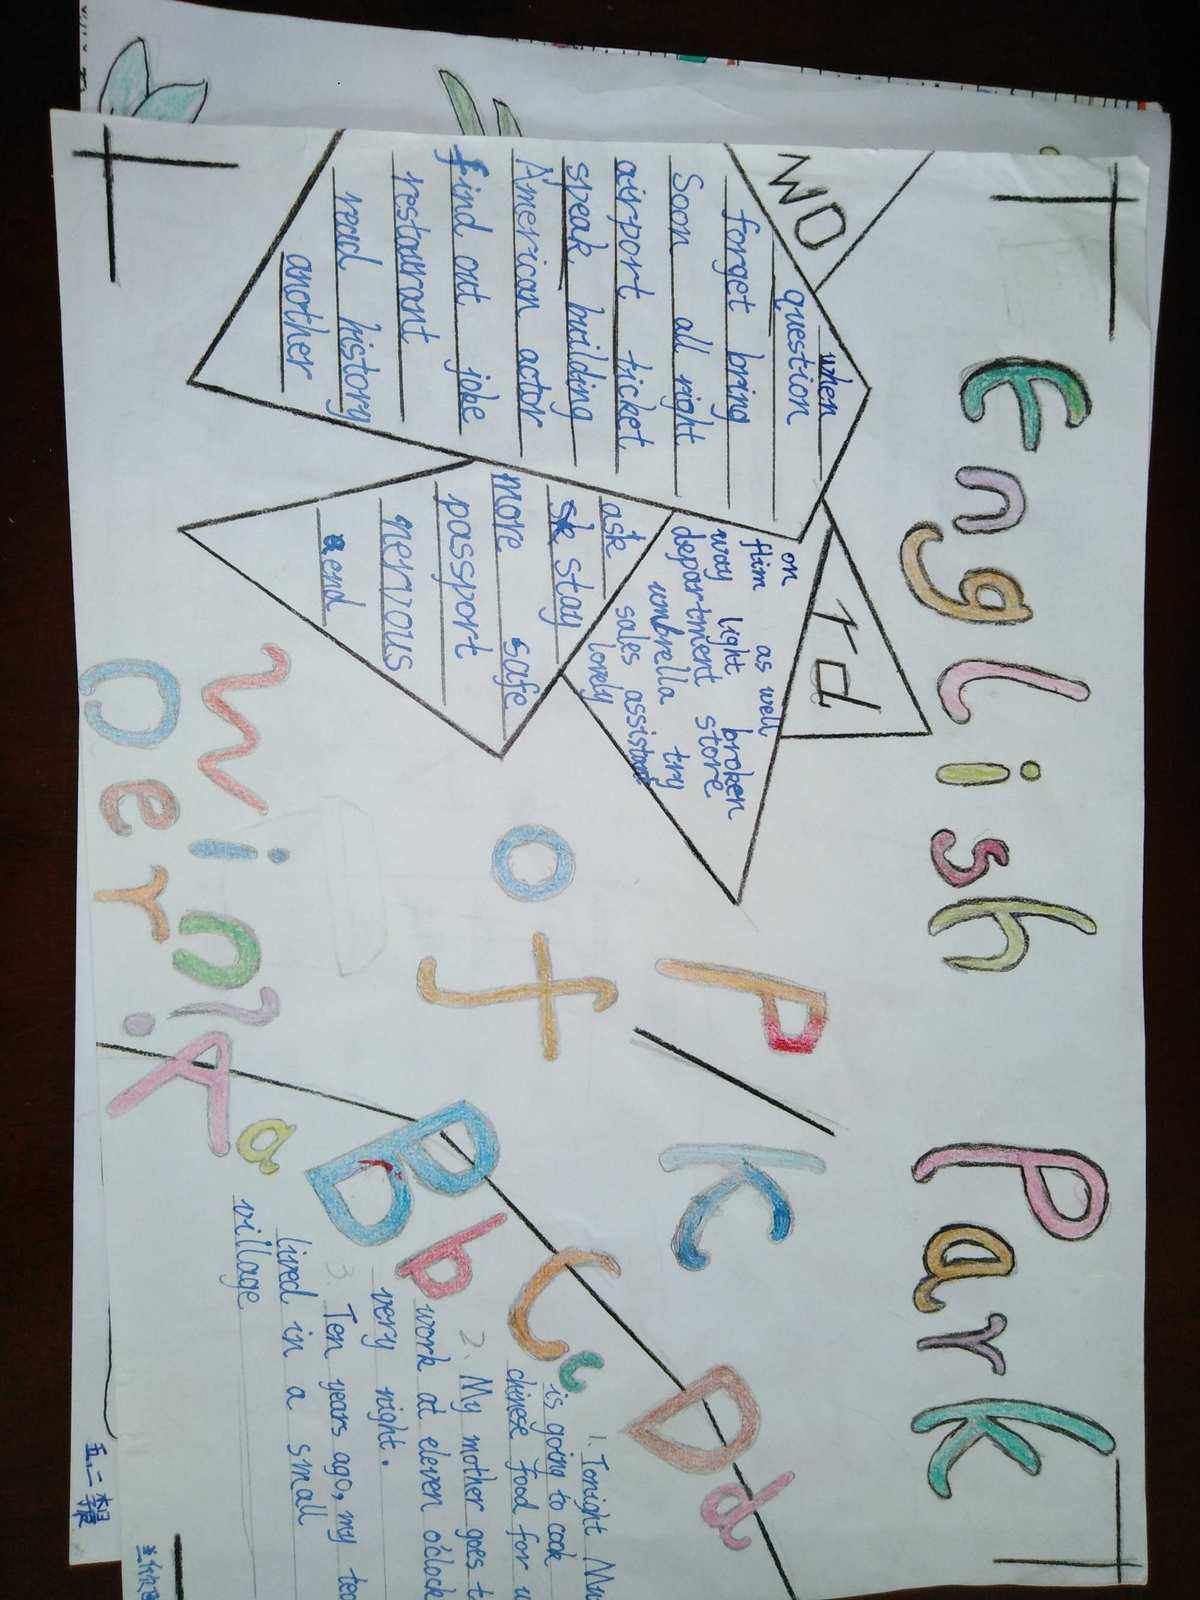 English Park
WO
rd
when
question
forget bring
Soon all right
airport ticket
speak building
American actor
find out joke
restaurant
read history
another
on as well
flim light broken
way department store
umbrella try
sales assistant
lovely
ask
stay
more safe
passport
nervous
end
P/K
of
win?
Oer
A a
B b
C c
D d
1. Tonight
is going to cook
chinese food for
2. My mother goes t
work at eleven o'clock
very night.
3. Ten years ago, my
lived in a small
village
五.二